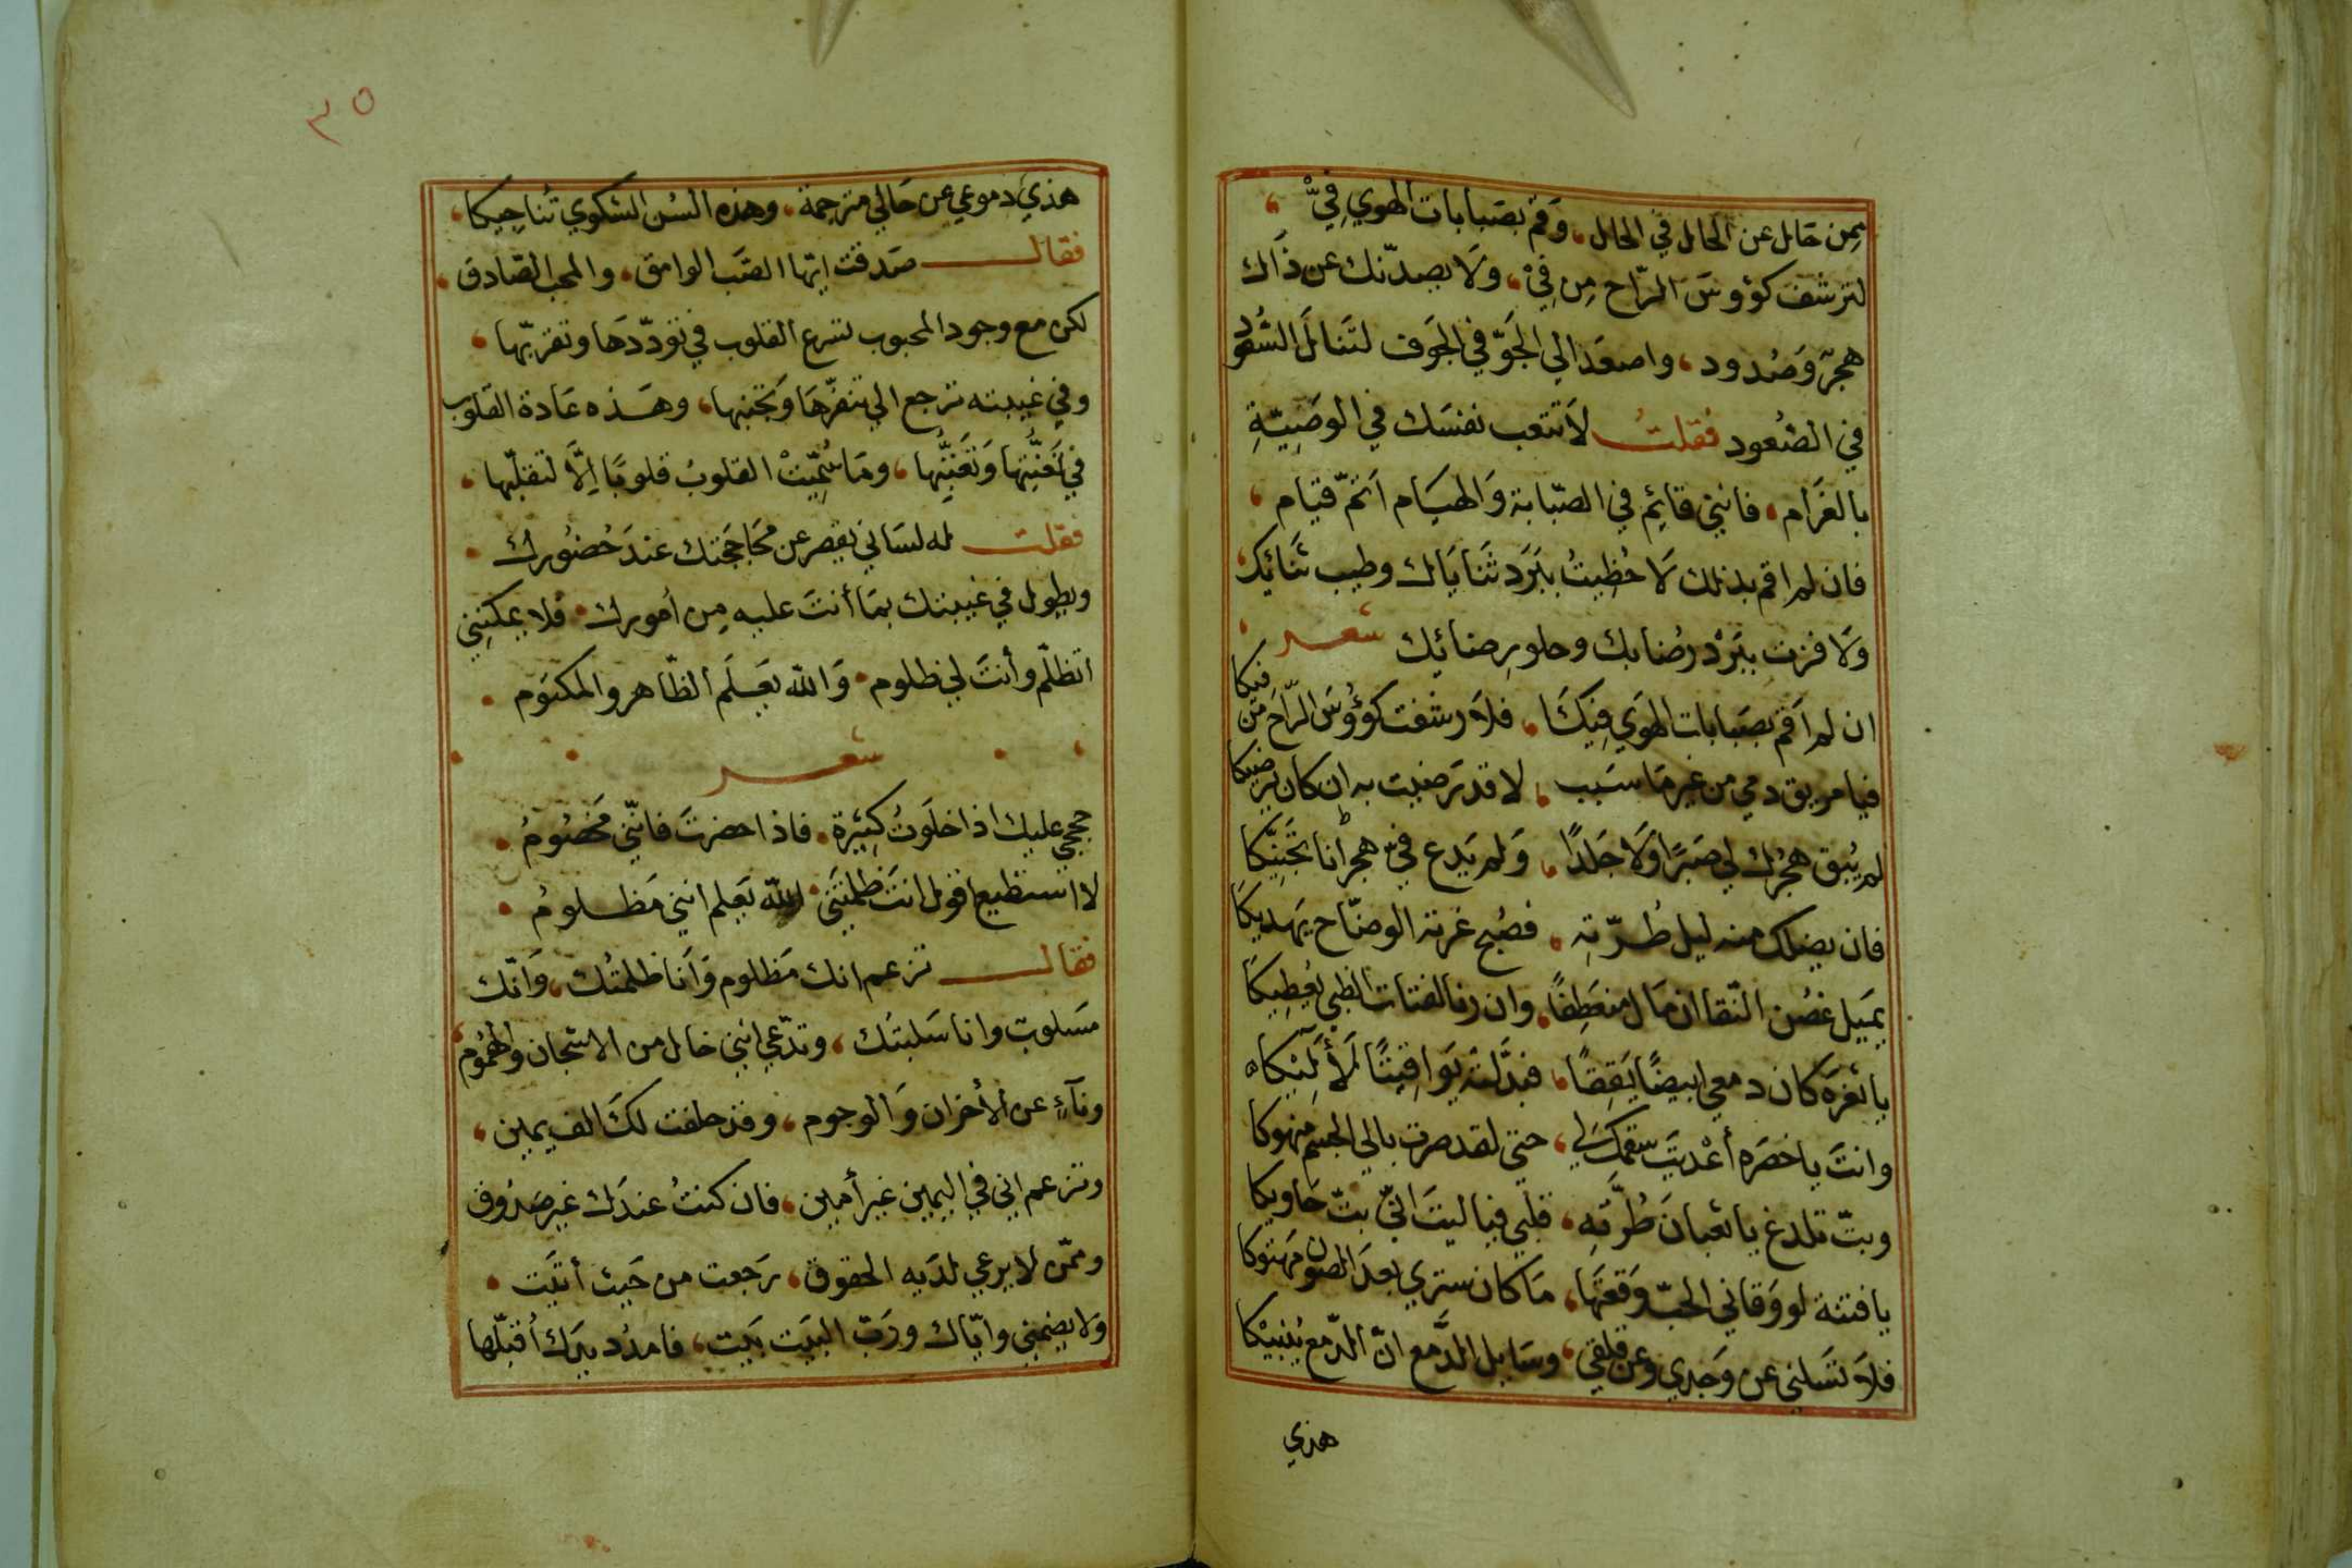 بمن حَال عن الحَال في الحال، وَقم بصَبابات الهوي فيّ،
لترشف كؤوسَ الرّاح مِن فيْ، ولَا يصدّنك عن ذَاك
هجرٌ وَصُدود، واصعَد الي الجَوّ في الجَوف لتَنالَ السُعود
في الصُّعود فقلتُ لاَ تتعب نفسَك في الوصَيّةِ
بالغرَام، فانني قائِم في الصّبابة وَالهيَام اَتمّ قيام،
فان لم اقم بذلك لَا حُظِيتُ ببَرَد ثنَايَاك وطيب ثنَائِك،
وَلَا فزت ببَرْد رُضابك وحلو رِضائِك شعر
ان لم اَقُم بصَبابات الهوَي فِيكَا، فلَا رشفت كؤُوسَ الرّاح مِن فيكا
فيا مريق دمي من غير مَا سَبب، لا قد رَضيت به ان كان يرضيكا
لم يُبق هجرُك لي صَبرًا وَلَا جَلَدًا، وَلم يَدع فيّ هجرانا تجَنّيكا
فان يضلك منه ليل طُرّتهِ، فصُبح غرته الوضّاح يَهديكا
يميَل غصُن النّقا ان مَال منعَطِفًا، وان رنا لفتات الظبي يُعطِيكا
يا ثغرَه كان دمعي ابيضًا يَقِقًا، فبدَّلَته يَوَاقيتًا لَأليكا
وانتَ يا خصَره أعْديَت سقمك لي، حتي لقد صرت بالي الجسم منهوكا
وبتّ تلدغ يا ثعبانَ طُرّتِه، قلبي فيا ليتَ انّي بتّ حَاويكا
يا فتنة لو وَقاني الحبّ وَقعتَها، مَا كان ستري بعدَ الصون مَهتوكا
فلاَ تسَلني عن وَجدي وعن قلقي، وسَايل الدَّمع انّ الدّمع يُنبيْكا
هذي
٣٥
هذيِ دموعي عن حَالي مترجمة، وهذه السُن الشكوي تُناجيكا،
فقال صَدقت ايّها الصَّب الوامق، والمحب الصّادق،
لكن مع وجود المحبوب لتسرع القلوب في تودّدهَا وتقربّها،
وفي غيبته ترجع الي تنفرّهَا وَتجنبها، وهَذه عَادة القلوب
في تَعَنّتها وَتعَنّيها، ومَا سُمِّيَتْ القلوبُ قلوبًا اِلَّا لتقلبّها،
فقلت له لسَاني يقصر عن محَاججتك عندَ حُضوُرك،
ويطول في غيبتك بمَا أنتَ عليه مِن أمورك، فلا يمكنني
اتظلّم وأنتَ لي ظلوم، وَالله يَعلَم الظّاهر والمكتوم،
شعر
حججي عليك اذا خلَوتُ كثيرة، فاذا حضرتَ فانّني مَخصُومُ،
لا استطيع اقول انتَ ظلمتَني، الله يَعلم انني مَظلومُ،
فقال تزعم انك مَظلوم وَاَنا ظلمتُك، وَانّك
مسَلوبٌ وانا سَلبتُك، وتدّعي انّني خال من الاشجان والهُمُوم،
وناءٍ عن الأحزان وَالوجوم، وقد حلفت لكَ الف يمين،
وتزعم اني في اليمين غير أمين، فان كنتُ عندَك غير صَدُوق
وممّن لا يرعي لدَيه الحقوق، رَجعت من حَيث أتيَت،
وَلا يضمني وايّاك ورَبّ البَيَت بَيت، فامدُد يدَك أُقبّلها